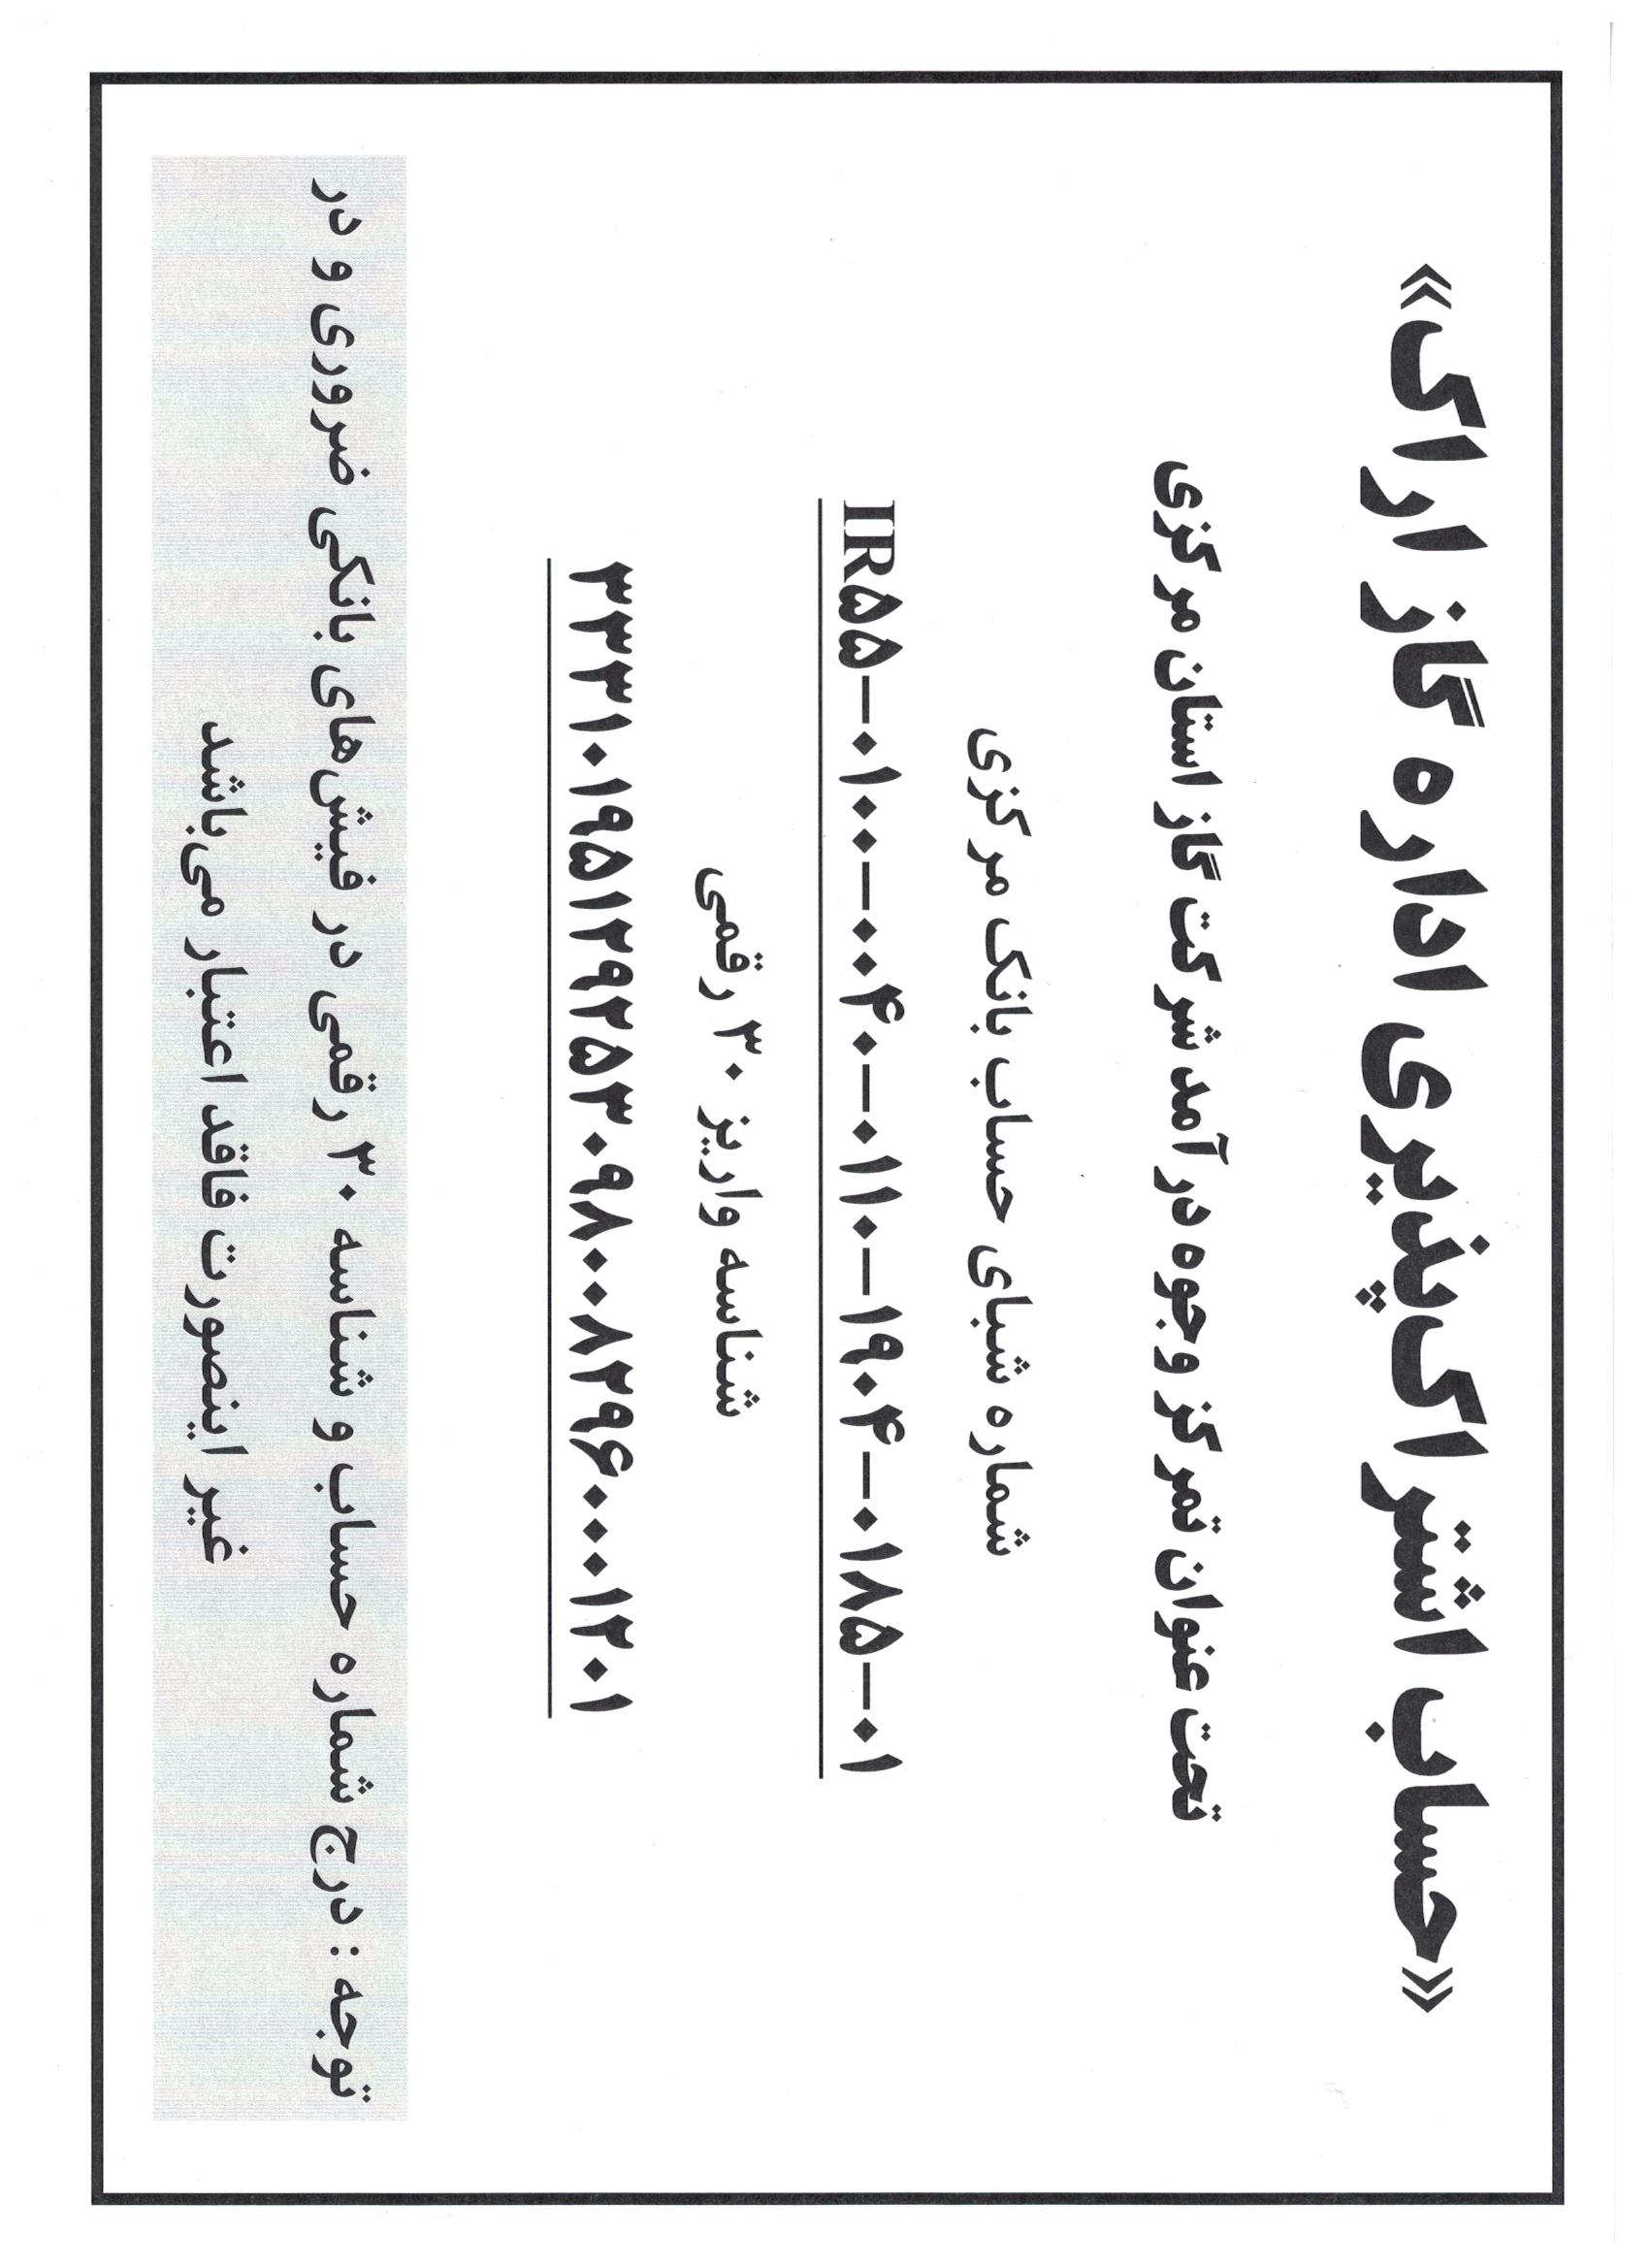 «حساب اشتراک‌پذیری اداره گاز اراک»
تحت عنوان تمرکز وجوه درآمد شرکت گاز استان مرکزی
شماره شبای حساب بانک مرکزی
IR۵۵-۰۱۰۰-۰۰۴۰-۰۱۱۰-۱۹۰۴-۰۱۸۵-۰۱
شناسه واریز ۳۰ رقمی
۳۳۳۱۰۱۹۵۱۲۹۲۵۳۰۹۸۰۰۸۲۹۶۰۰۰۱۲۰۱
توجه : درج شماره حساب و شناسه ۳۰ رقمی در فیش‌های بانکی ضروری و در
غیر اینصورت فاقد اعتبار می‌باشد